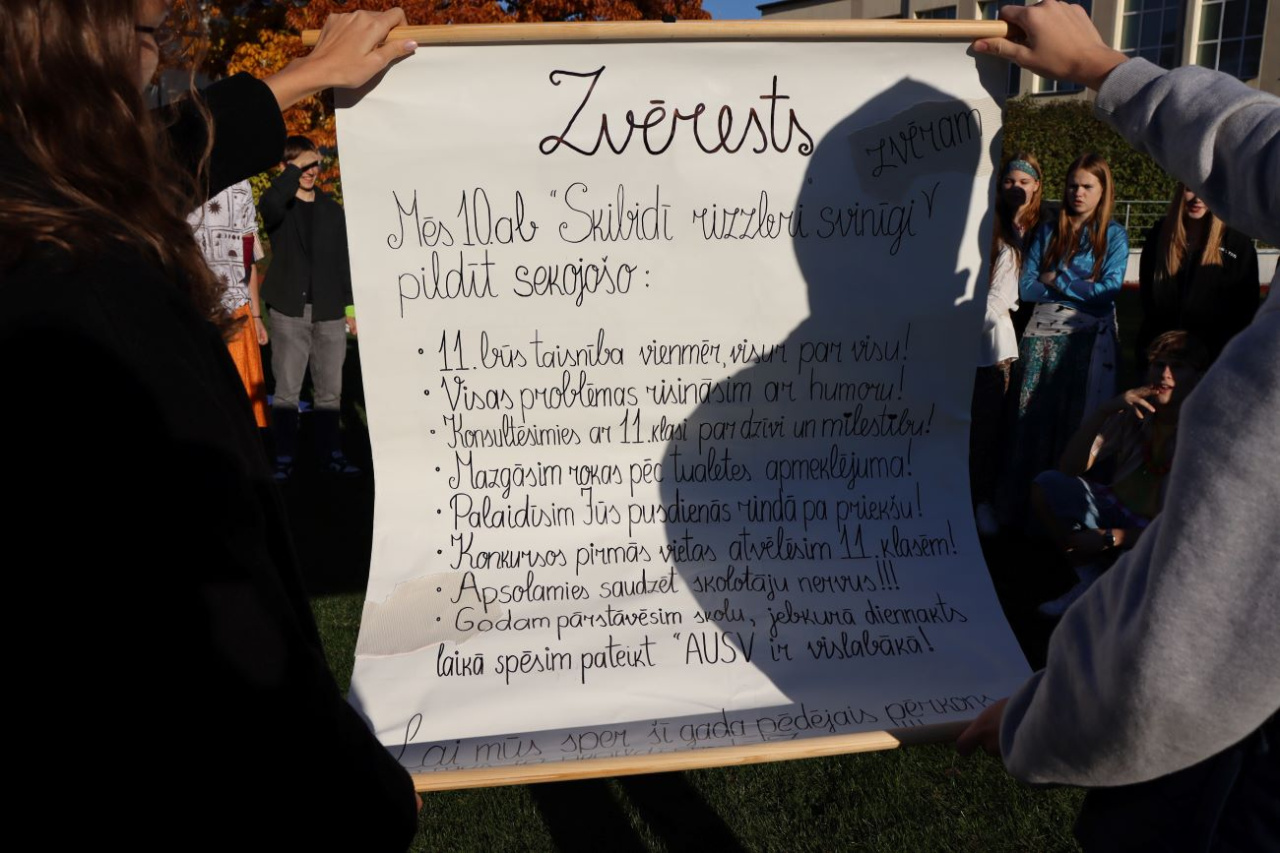 Zvērests
zvēram
Mēs 10.ab "Skibidī rizzleri svinīgi
pildīt sekojošo:
• 11. būs taisnība vienmēr, visur par visu!
• Visas problēmas risināsim ar humoru!
• Konsultēsimies ar 11. klasi par dzīvi un mīlestību!
• Mazgāsim rokas pēc tualetes apmeklējuma!
• Palaidīsim Jūs pusdienās rindā pa priekšu!
• Konkursos pirmās vietas atvēlēsim 11. klasēm!
• Apsolamies saudzēt skolotāju nervus!!!
• Godam pārstāvēsim skolu, jebkurā diennakts
laikā spēsim pateikt "AUSV ir vislabākā!
Lai mūs sper šī gada pēdējais pērkons